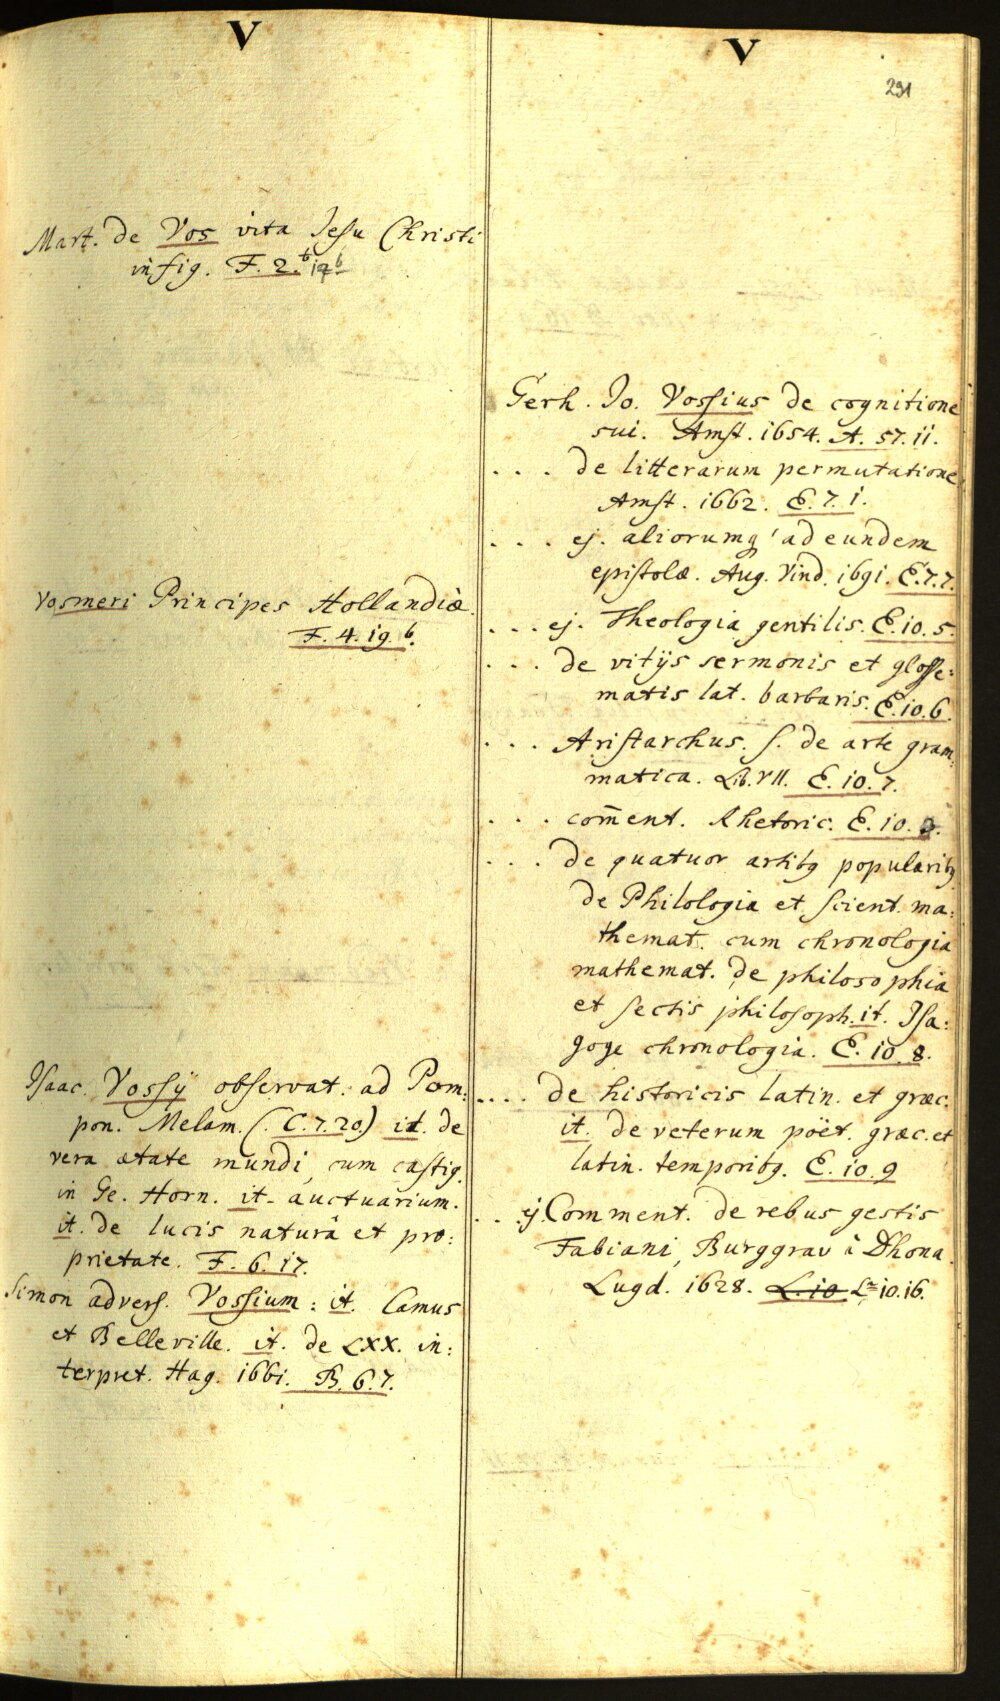 V
Mart. de Vos vita Jesu Christi
in fig. F. 2.
Vosmeri Principes Hollandiæ.
F. 4. 19 b.
Isaac. Vossÿ observat. ad Pom:
pon. Melam. (. C. 7. 20.) it. de
vera ætate mundi, cum castig.
in Ge. Horn. it. auctuarium.
it. de lucis naturâ et pro:
prietate. F. 6. 17.
Simon advers. Vossium: it. Camus
et Belleville. it. de LXX. in:
terpret. Hag. 1661. B. 6. 7.
V
291
Gerh. Jo. Vossius de cognitione
sui. Amst. 1654. A. 57. 11.
. . . de litterarum permutatione
Amst. 1662. E. 7. 1.
. . . ej. aliorumq' ad eundem
epistolæ. Aug. Vind. 1691. E. 7. 7.
. . . ej. Theologia gentilis. E. 10. 5.
. . . de vitijs sermonis et glosse:
matis lat. barbaris. E. 10. 6.
. . . Aristarchus. s. de arte gram:
matica. Lib. VII. E. 10. 7.
. . . com̄ent. Rhetoric. E. 10.
. . . de quatuor artibq popularibq
de Philologia et Scient. ma:
themat. cum chronologia
mathemat. de philosophia
et sectis philosoph. it. Isa:
goge chronologia. E. 10. 8.
. . . . de historicis latin. et græc.
it. de veterum poët. græc. et
latin. temporibq. E. 10. 9
. . ej. Comment. de rebus gestis
Fabiani, Burggrav à Dhona.
Lugd. 1628. L. 10 L= 10. 16.